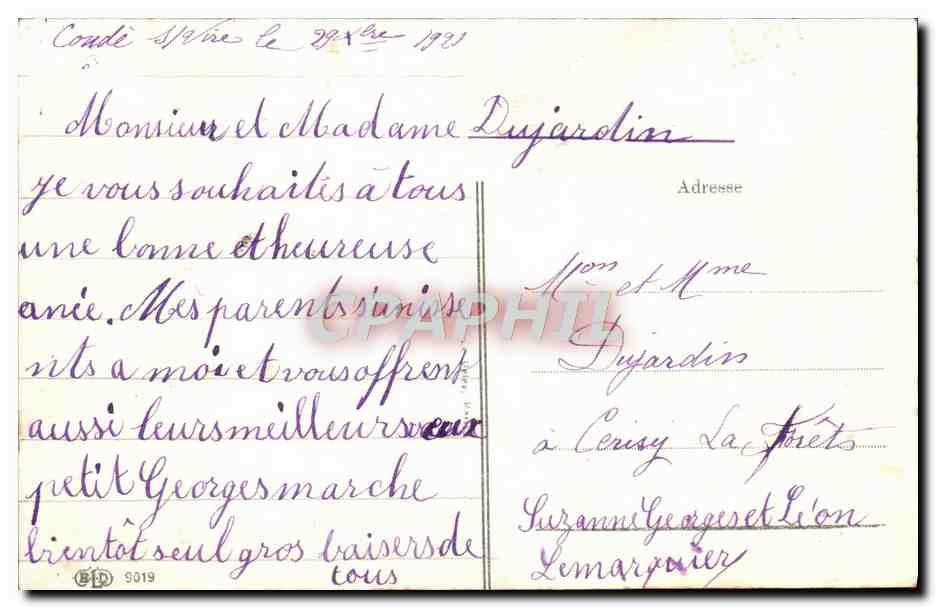 Condé s/Vire le 29 Xbre 1921
Monsieur et Madame Dujardin
Je vous souhaités à tous
une bonne et heureuse
anée. Mes parents s'unisse
nts a moi et vous offrent
aussi leurs meilleurs vœux
petit Georges marche
bientôt seul gros baisers de
tous
ELD 9019
Adresse
Mon et Mme
Dujardin
à Cerisy La Forêts
Suzanne Georges et Léon
Lemarquier
CPAPHIL